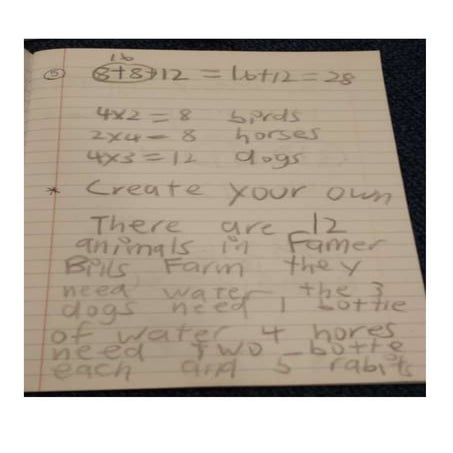 16
⑤ 8+8+12 = 16+12 = 28
4x2 = 8 birds
2x4 = 8 horses
4x3 = 12 dogs
* Create your own
There are 12
animals in Famer
Bills Farm they
need water the 3
dogs need 1 bottle
of water 4 hores
need two botte
each and 5 rabits